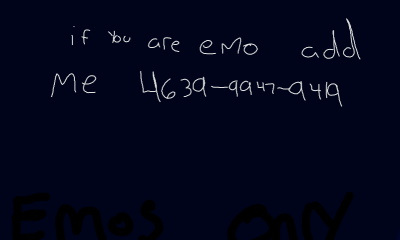 if you are emo add
me 4639-9947-9419
Emos Only